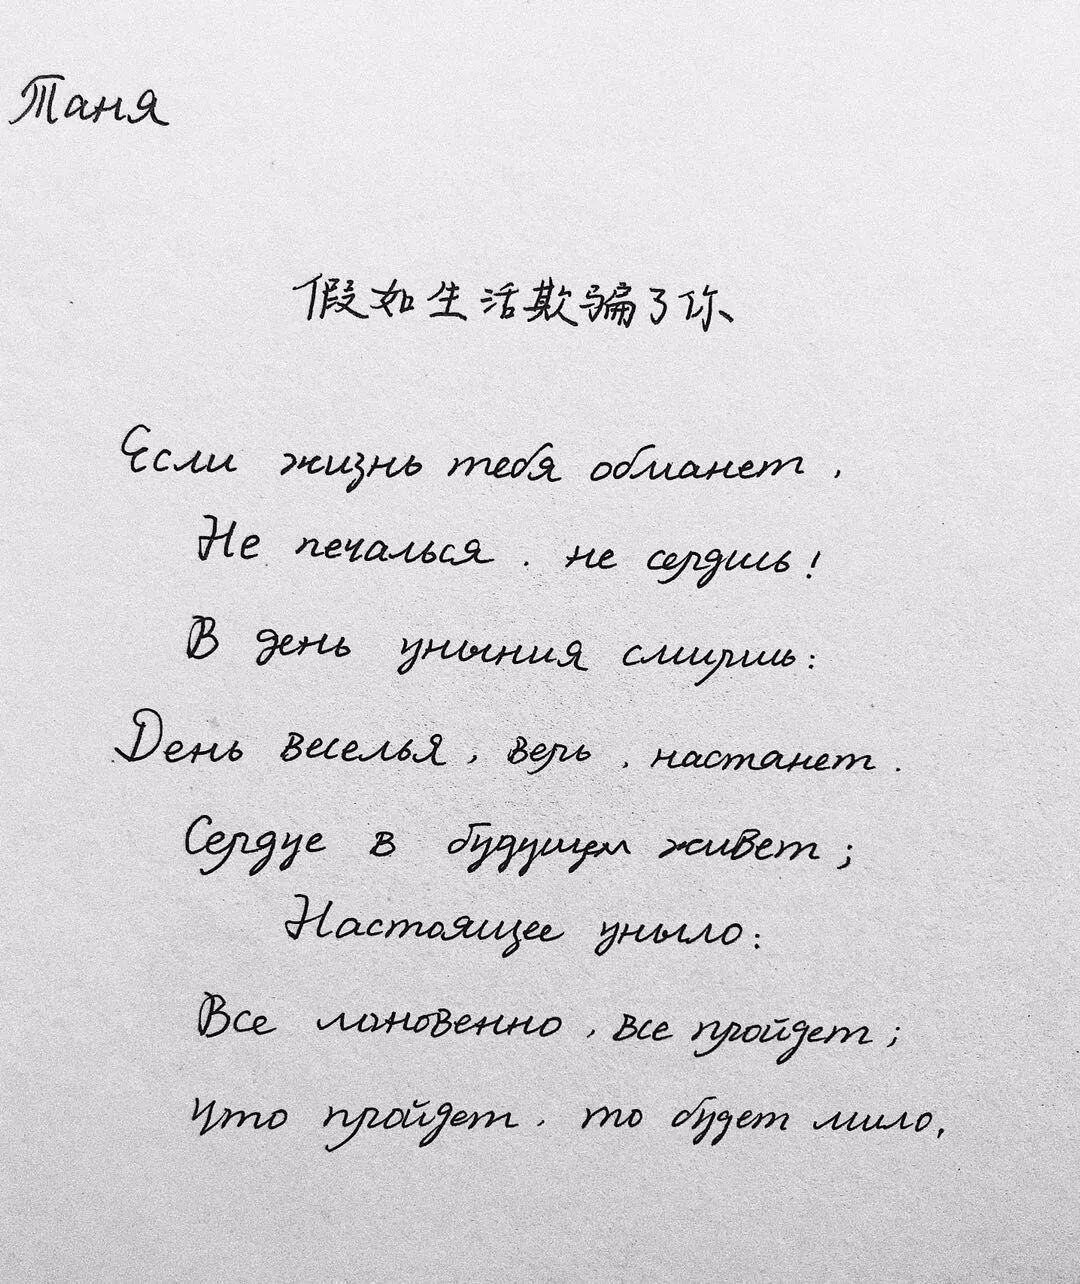 Таня
假如生活欺骗了你
Если жизнь тебя обманет,
Не печалься, не сердишь!
В день уныния смиришь:
День веселья, верь, настанет.
Сердце в будущем живет;
Настоящее уныло:
Все мгновенно, все пройдет;
Что пройдет, то будет мило.